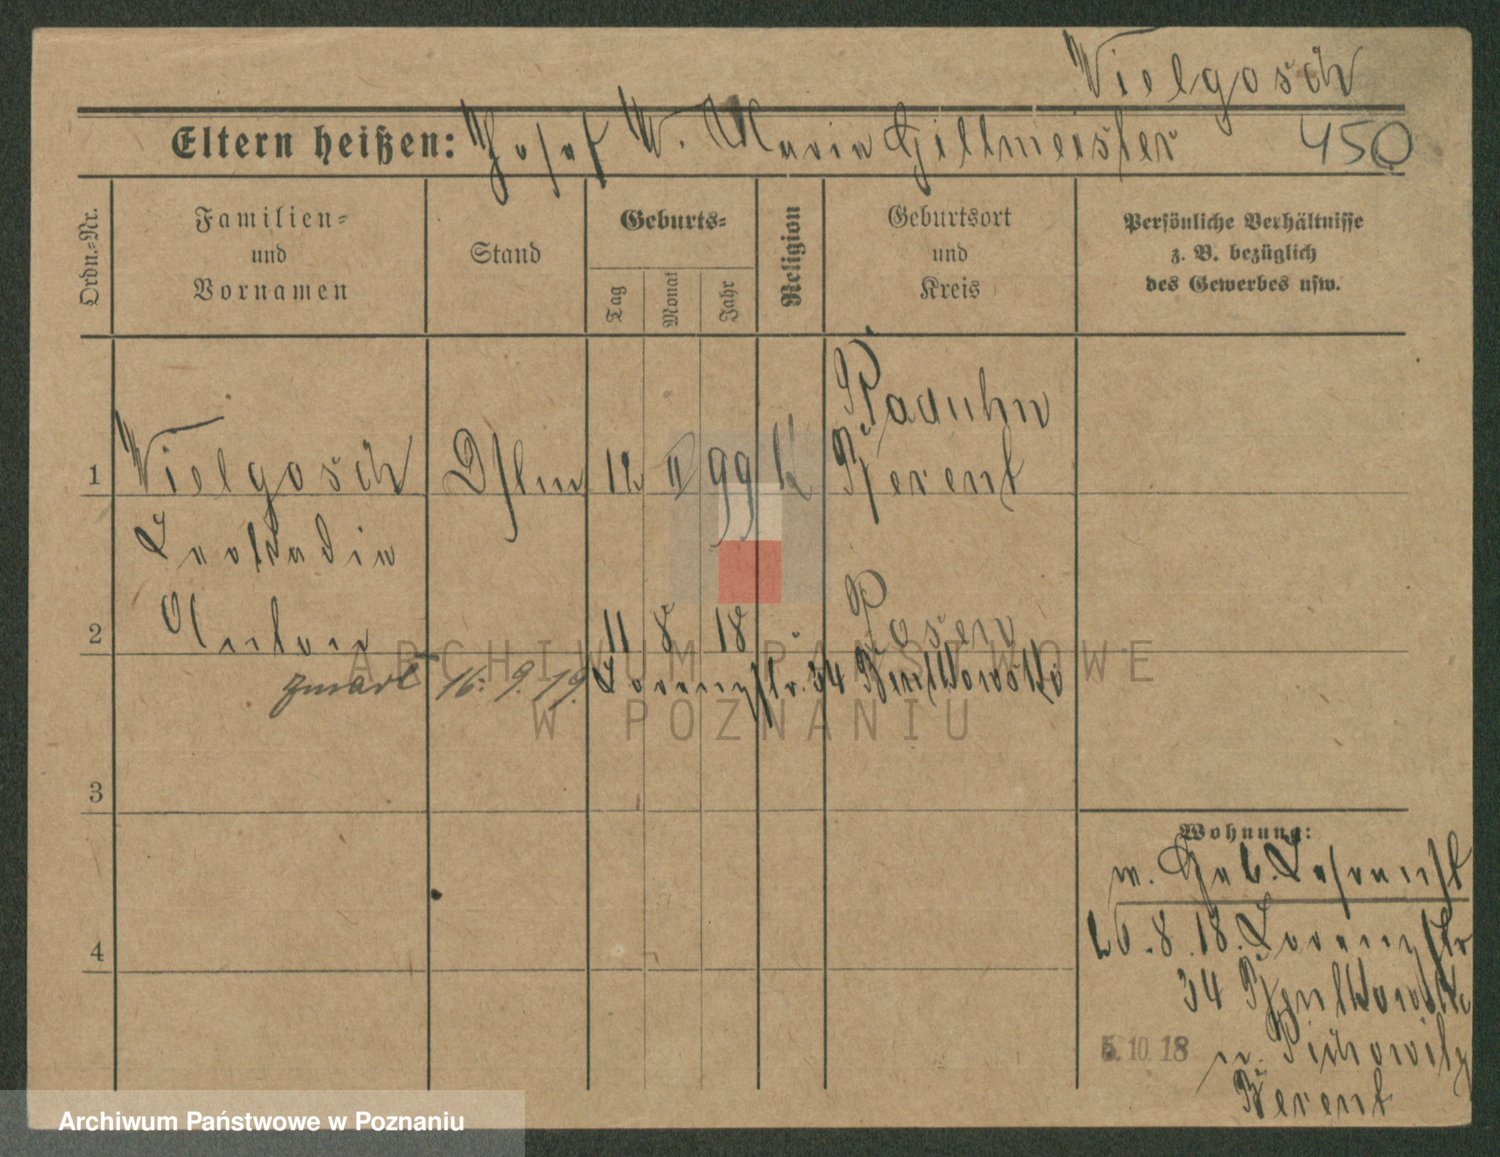 Vielgosch
Eltern heißen: Josef W. Maria Gillmeister 450
Ordn.-Nr.
Familien-
und
Vornamen
Stand
Geburts-
Tag
Monat
Jahr
Religion
Geburtsort
und
Kreis
Persönliche Verhältnisse
z. B. bezüglich
des Gewerbes usw.
Raduhn
1 Vielgosch 12 II 99 k Berent
Leokadia
Posen
2 Anton 11 8 18
zmarł 16. 9. 19. Lorenzstr. 34 Bentkowski
3
Wohnung:
Geb.
26.8.18. Lorenzstr
4
34 Bentkowski
5.10.18 n.
Berent
ARCHIWUM PAŃSTWOWE
W POZNANIU
Archiwum Państwowe w Poznaniu